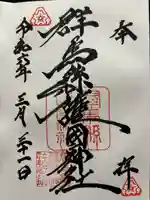 奉拝
群馬縣護國神社
令和六年三月二十一日